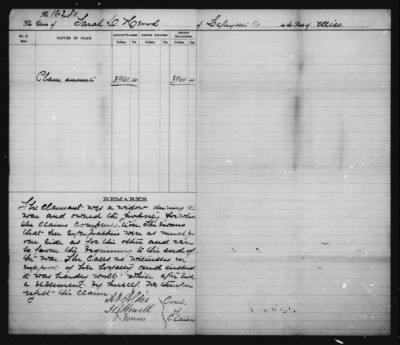 No.
The Claim of Sarah L Wood of Lafayette Co in the State of Miss
No. of Item. NATURE OF CLAIM. AMOUNT CLAIMED. AMOUNT ALLOWED. AMOUNT DISALLOWED.
Dollars Cts Dollars Cts Dollars Cts
Claim amounts 3960.00 3960.00
REMARKS
The claimant was a widow during the
war and owned the property for which
she claims compensation She swears
that her sympathies were as much for
one side as for the other and
to favor the to the end of
the war. She calls no witnesses in
support of her loyalty and
it was hardly worth while after such
a statement by herself We therefore
reject the claim
A O Aldis
J B Howell
O Ferriss
Com
of
Claims